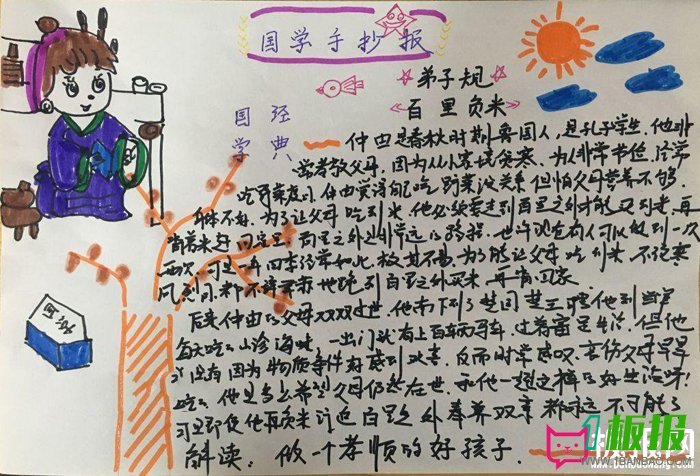 国学手抄报
弟子规
百里负米
国学
经典
仲由是春秋时期鲁国人,是孔子学生,他非
常孝敬父母,因为从小家境贫寒,为人非常节俭,经常
吃野菜度日,仲由觉得自己吃野菜没关系但怕父母营养不够,
身体不好,为了让父母吃到米,他必须要走到百里之外才能买到米,再
背着米赶回家里,百里之外是非常远的路程,也许现在有人可以做到一次
两次,可是一年四季经常如此极其不易,为了能让父母吃到米,不论寒
风烈日,都不辞辛苦地跑到百里之外买米,再背回家。
后来仲由的父母双双过世,他南下到了楚国,楚王聘他到当官
每天吃的山珍海味,一出门就有上百辆的马车,过着富足生活。但他
没有因为物质条件好感到欢喜,反而时常感叹,哀伤父母早早
他是多么希望父母仍然在世,和他一起过这样的好生活呀!
可即使他再负米
百里之外奉养双亲,都永远不可能了
解读:做一个孝顺的好孩子.
国学
1板报
WWW.1BANBAO.COM